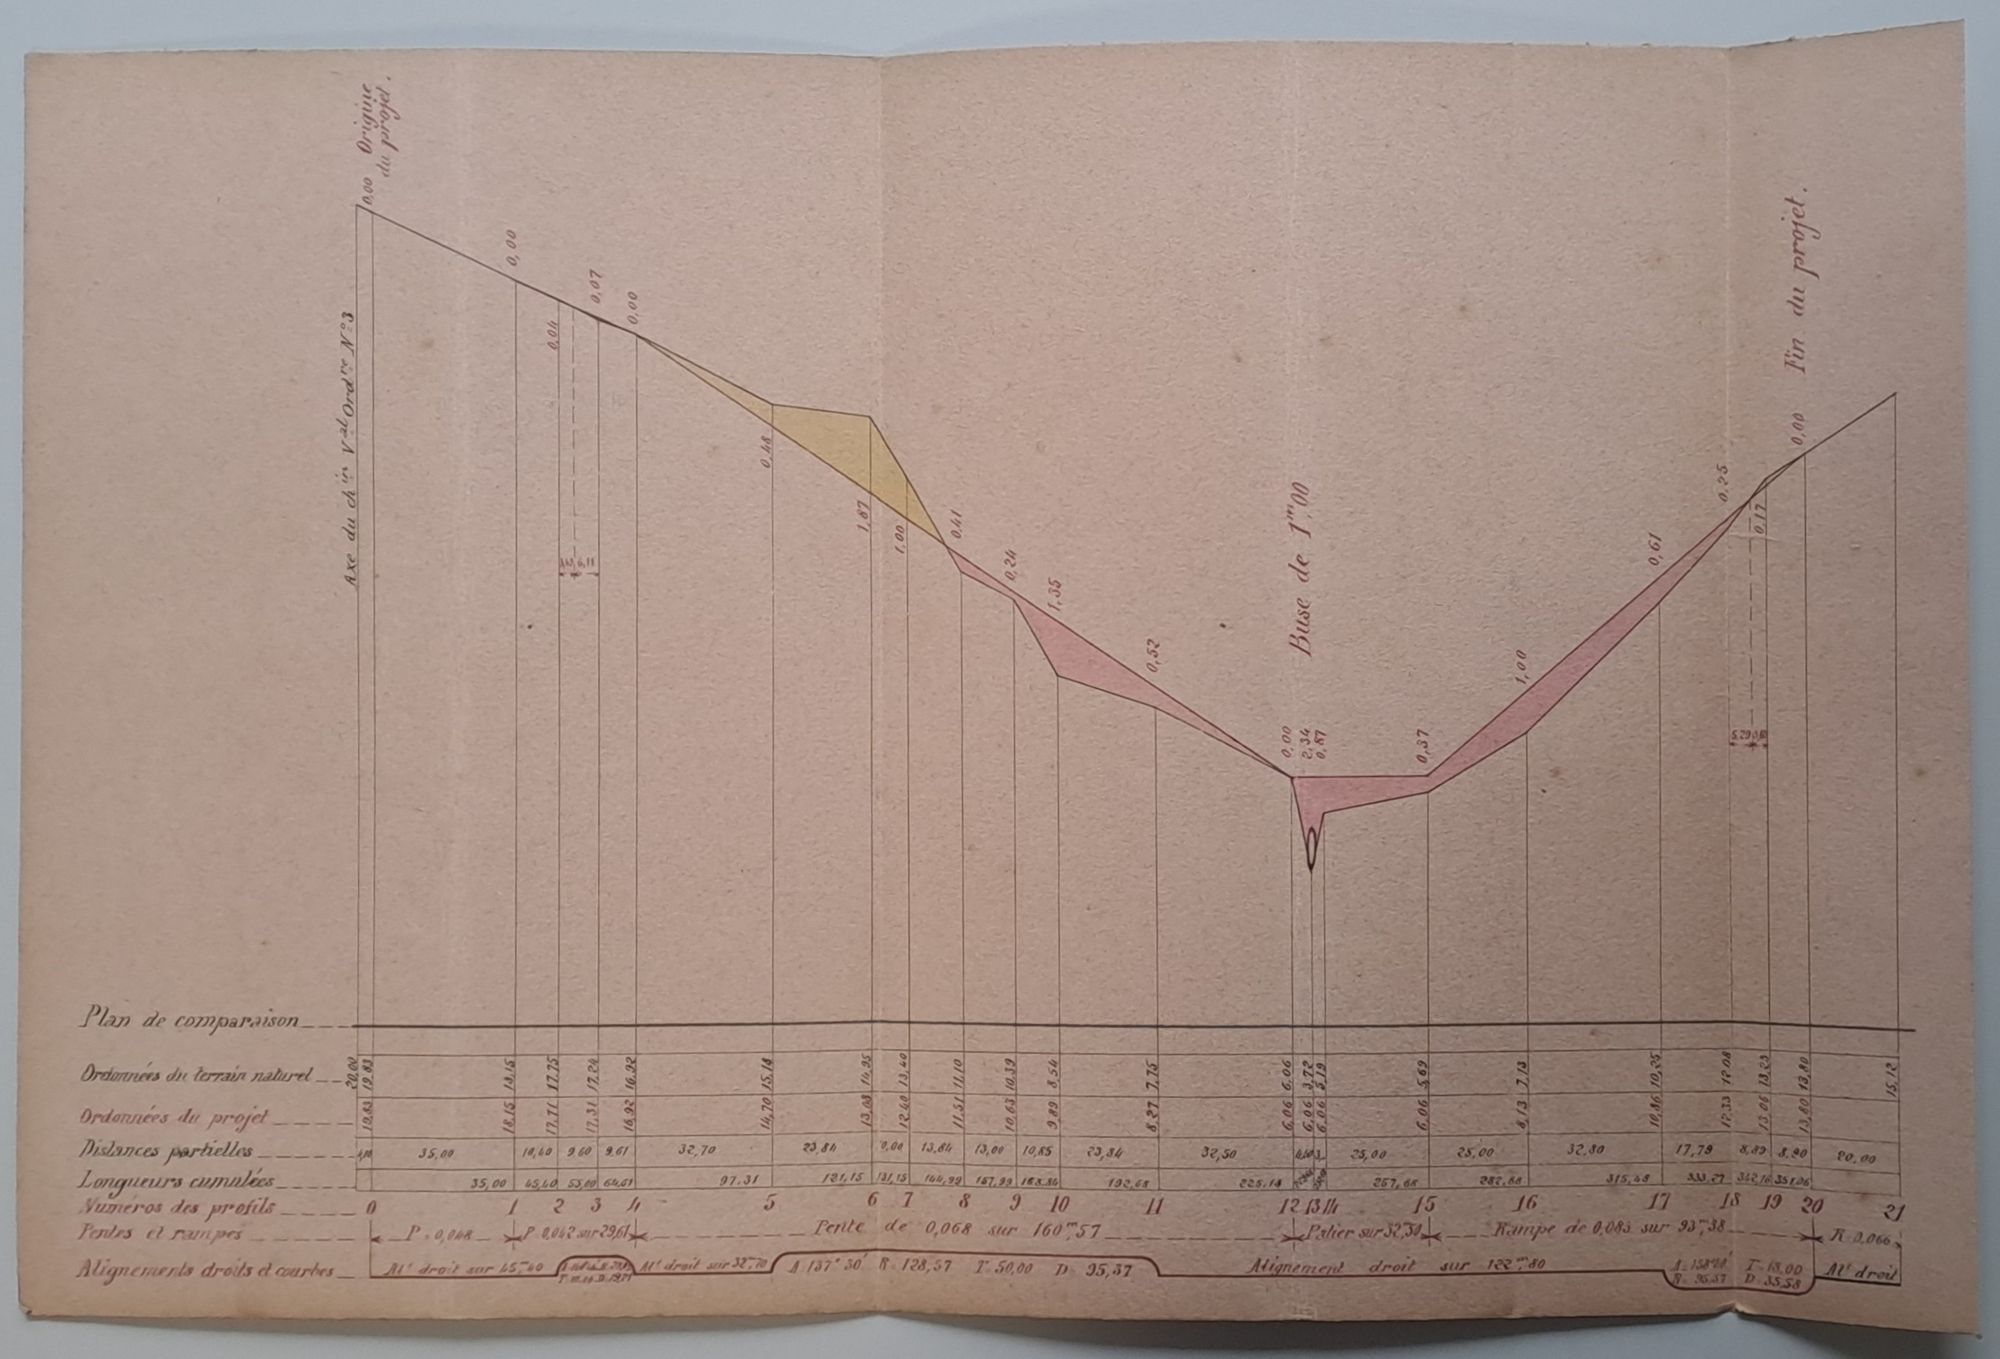 Origine
du projet.
0,00
Axe du ch.in V.al Ord.re N°3
0,00
0,04
0,07
0,00
6,11
0,48
1,87
1,00
0,41
0,24
1,35
0,52
Buse de 1m,00
0,00
2,34
0,87
0,37
1,00
0,61
0,25
0,17
5,29
0,00
Fin du projet.
Plan de comparaison
Ordonnées du terrain naturel 20,00 19,83 18,15 17,75 17,24 16,92 15,18 14,95 13,40 11,10 10,39 8,54 7,75 6,06 3,72 5,19 5,69 7,13 10,25 12,08 13,23 13,80 15,12
Ordonnées du projet 19,83 18,15 17,71 17,31 16,92 14,70 13,08 12,40 11,51 10,63 9,89 8,27 6,06 6,06 6,06 6,06 8,13 10,86 12,33 13,06 13,80
Distances partielles 35,00 10,40 9,60 9,61 32,70 23,84 13,84 13,00 10,85 23,84 32,50 25,00 25,00 32,80 17,79 8,89 8,90 20,00
Longueurs cumulées 35,00 45,40 55,00 64,61 97,31 121,15 131,15 144,99 157,99 168,84 192,68 225,18 257,68 282,68 315,48 333,27 342,16 351,06
Numéros des profils 0 1 2 3 4 5 6 7 8 9 10 11 12 13 14 15 16 17 18 19 20 21
Pentes et rampes P=0,048 P 0,042 sur 29,61 Pente de 0,068 sur 160m,57 Palier sur 32,50 Rampe de 0,083 sur 93m,38 R 0,066
Alignements droits et courbes Alt droit sur 45m,40 Alt droit sur 32m,70 A 137° 30' R=128,57 T=50,00 D=95,37 Alignement droit sur 122m,80 T=18,00 D=35,58 Alt droit